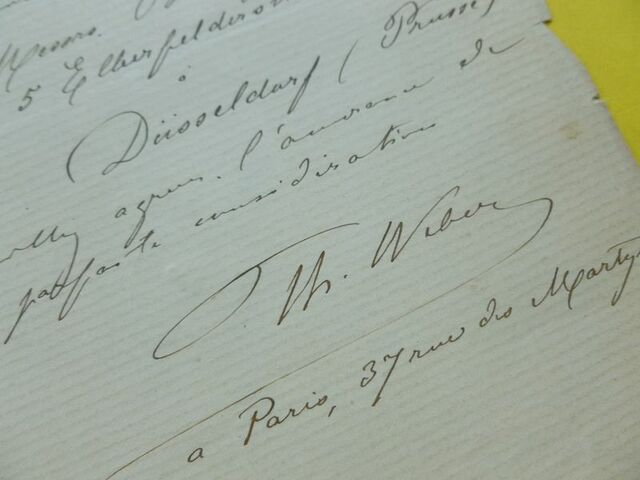 Messrs.
5 Elberfelderstr
à
Düsseldorf (Prusse)
agréer l'assurance de
parfaite considération
Th. Weber
a Paris, 37 rue des Martyr